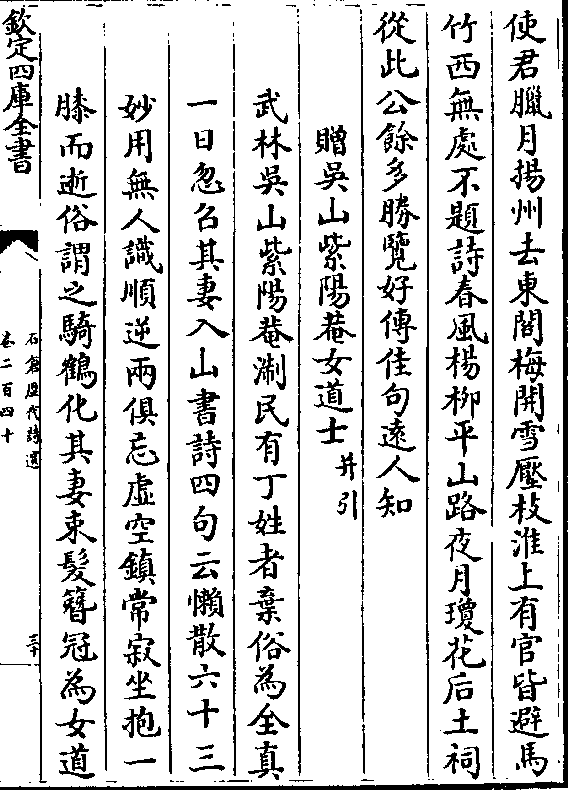 使君臘月揚州去東閣梅開雪壓枝淮上有官皆避馬
竹西無處不題詩春風楊柳平山路夜月瓊花后土祠
從此公餘多勝覽好傳佳句遠人知
贈吳山紫陽菴女道士并引
武林吳山紫陽菴淛民有丁姓者棄俗為全真
一日忽召其妻入山書詩四句云懶散六十三
妙用無人識順逆兩俱忘虛空鎮常寂坐抱一
膝而逝俗謂之騎鶴化其妻束髮簪冠為女道
欽定四庫全書
石倉歷代詩選
卷二百四十
三十